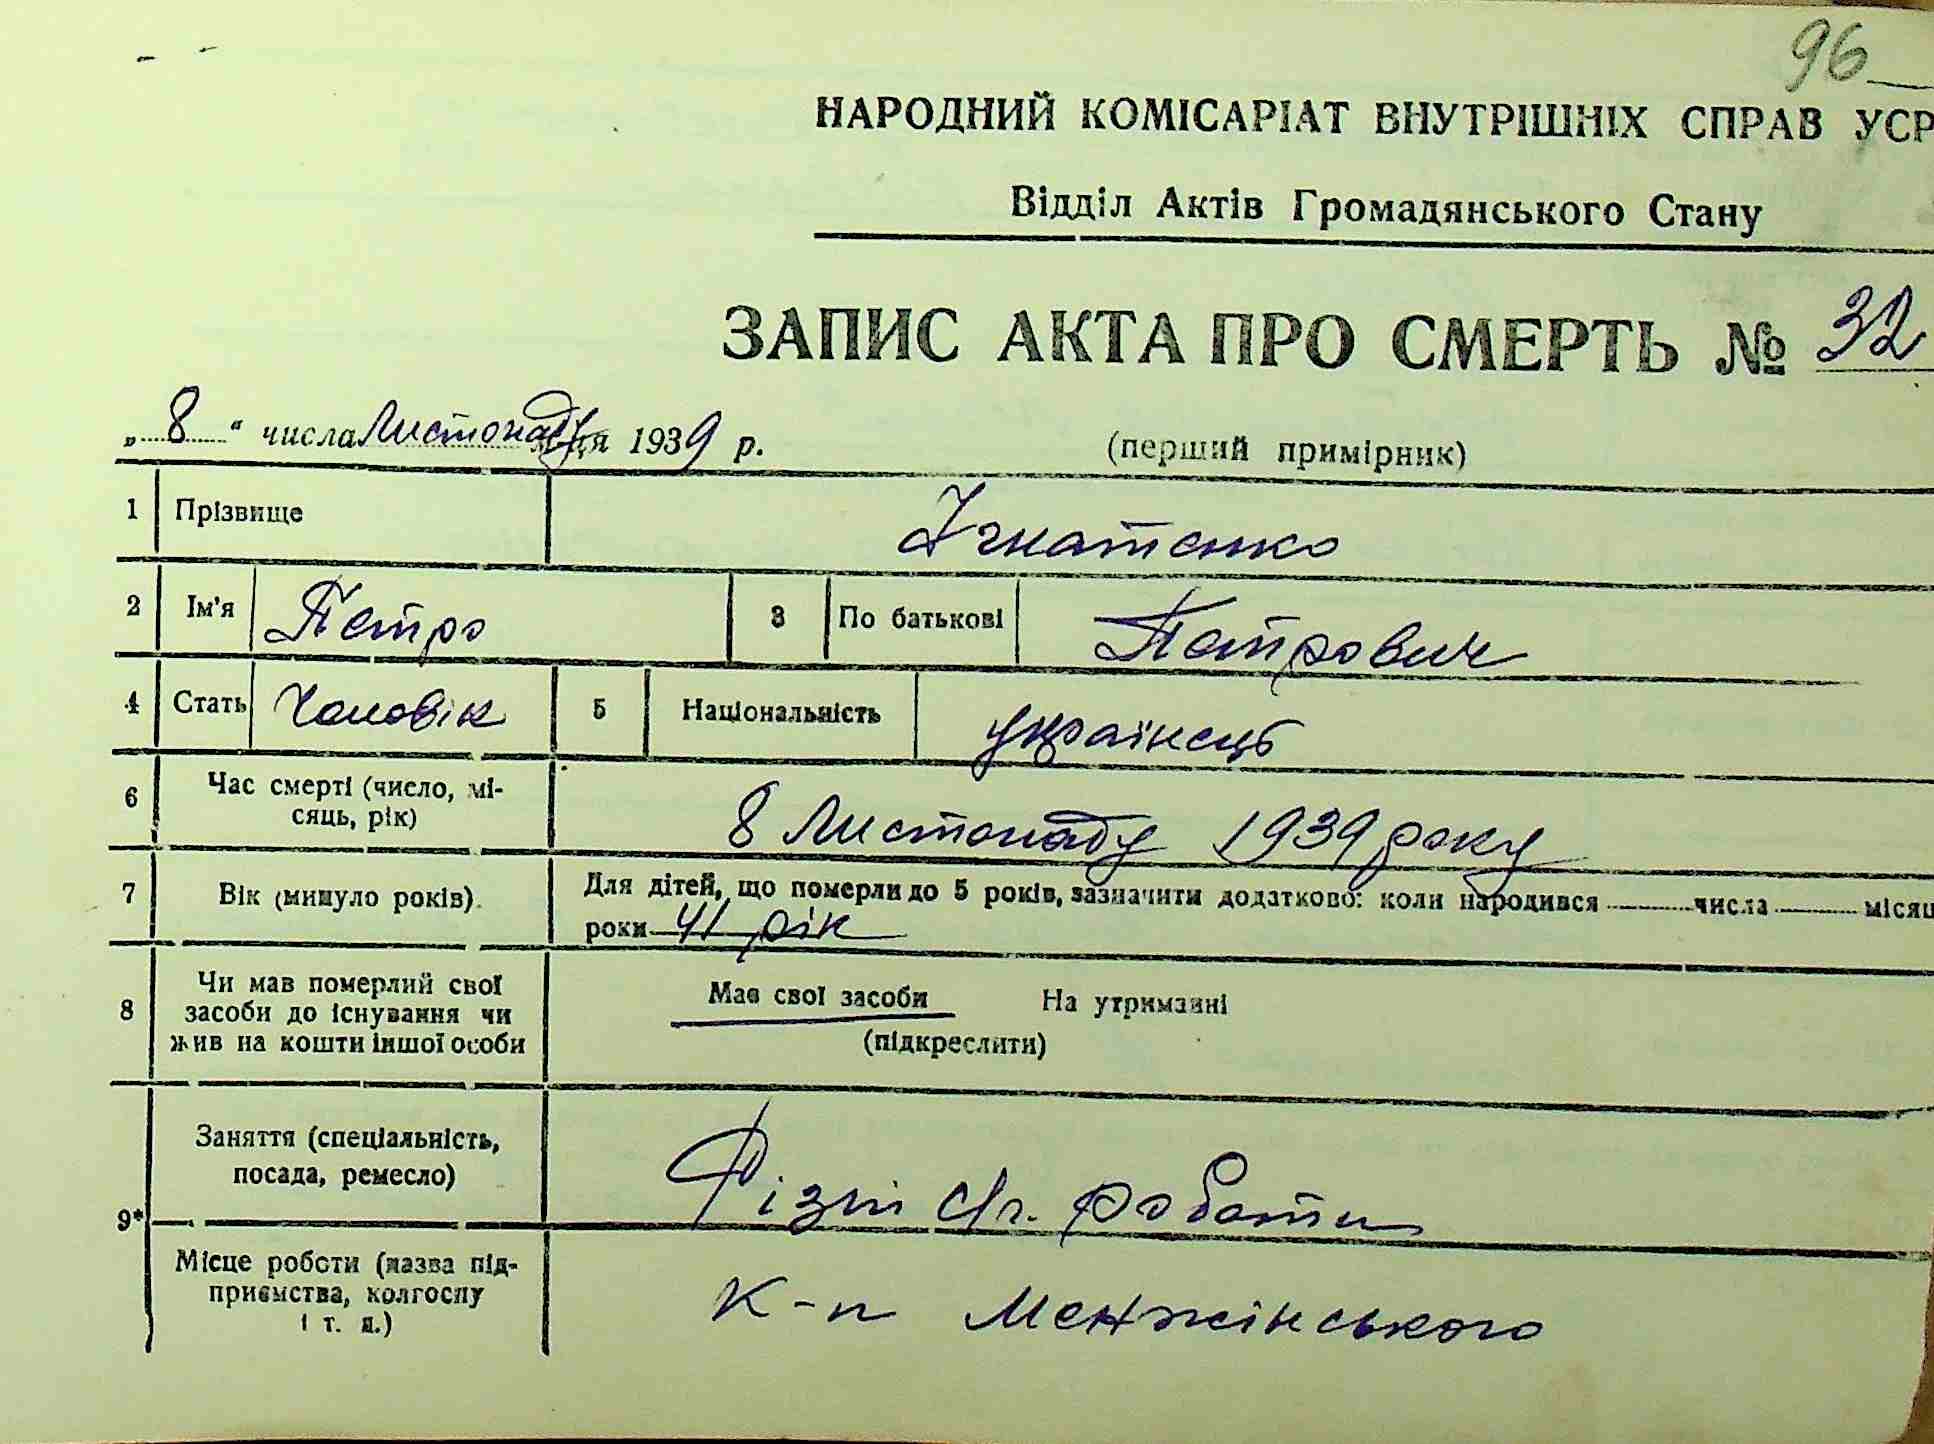 96
НАРОДНИЙ КОМІСАРІАТ ВНУТРІШНІХ СПРАВ УСР
Відділ Актів Громадянського Стану
ЗАПИС АКТА ПРО СМЕРТЬ № 32
„ 8 “ числа Листопаду м-ця 1939 р.
(перший примірник)
1 Прізвище Ігнатенко
2 Ім'я Петро 3 По батькові Петрович
4 Стать Чоловік 5 Національність українець
6 Час смерті (число, мі-
сяць, рік) 8 Листопаду 1939 року
7 Вік (минуло років). Для дітей, що померли до 5 років, зазначити додатково: коли народився числа місяц
роки 41 рік
8 Чи мав померлий свої
засоби до існування чи
жив на кошти іншої особи
Має свої засоби На утриманні
(підкреслити)
9* Заняття (спеціальність,
посада, ремесло)
роботи
Місце роботи (назва під-
приємства, колгоспу
і т. п.)
к-п Менжінського